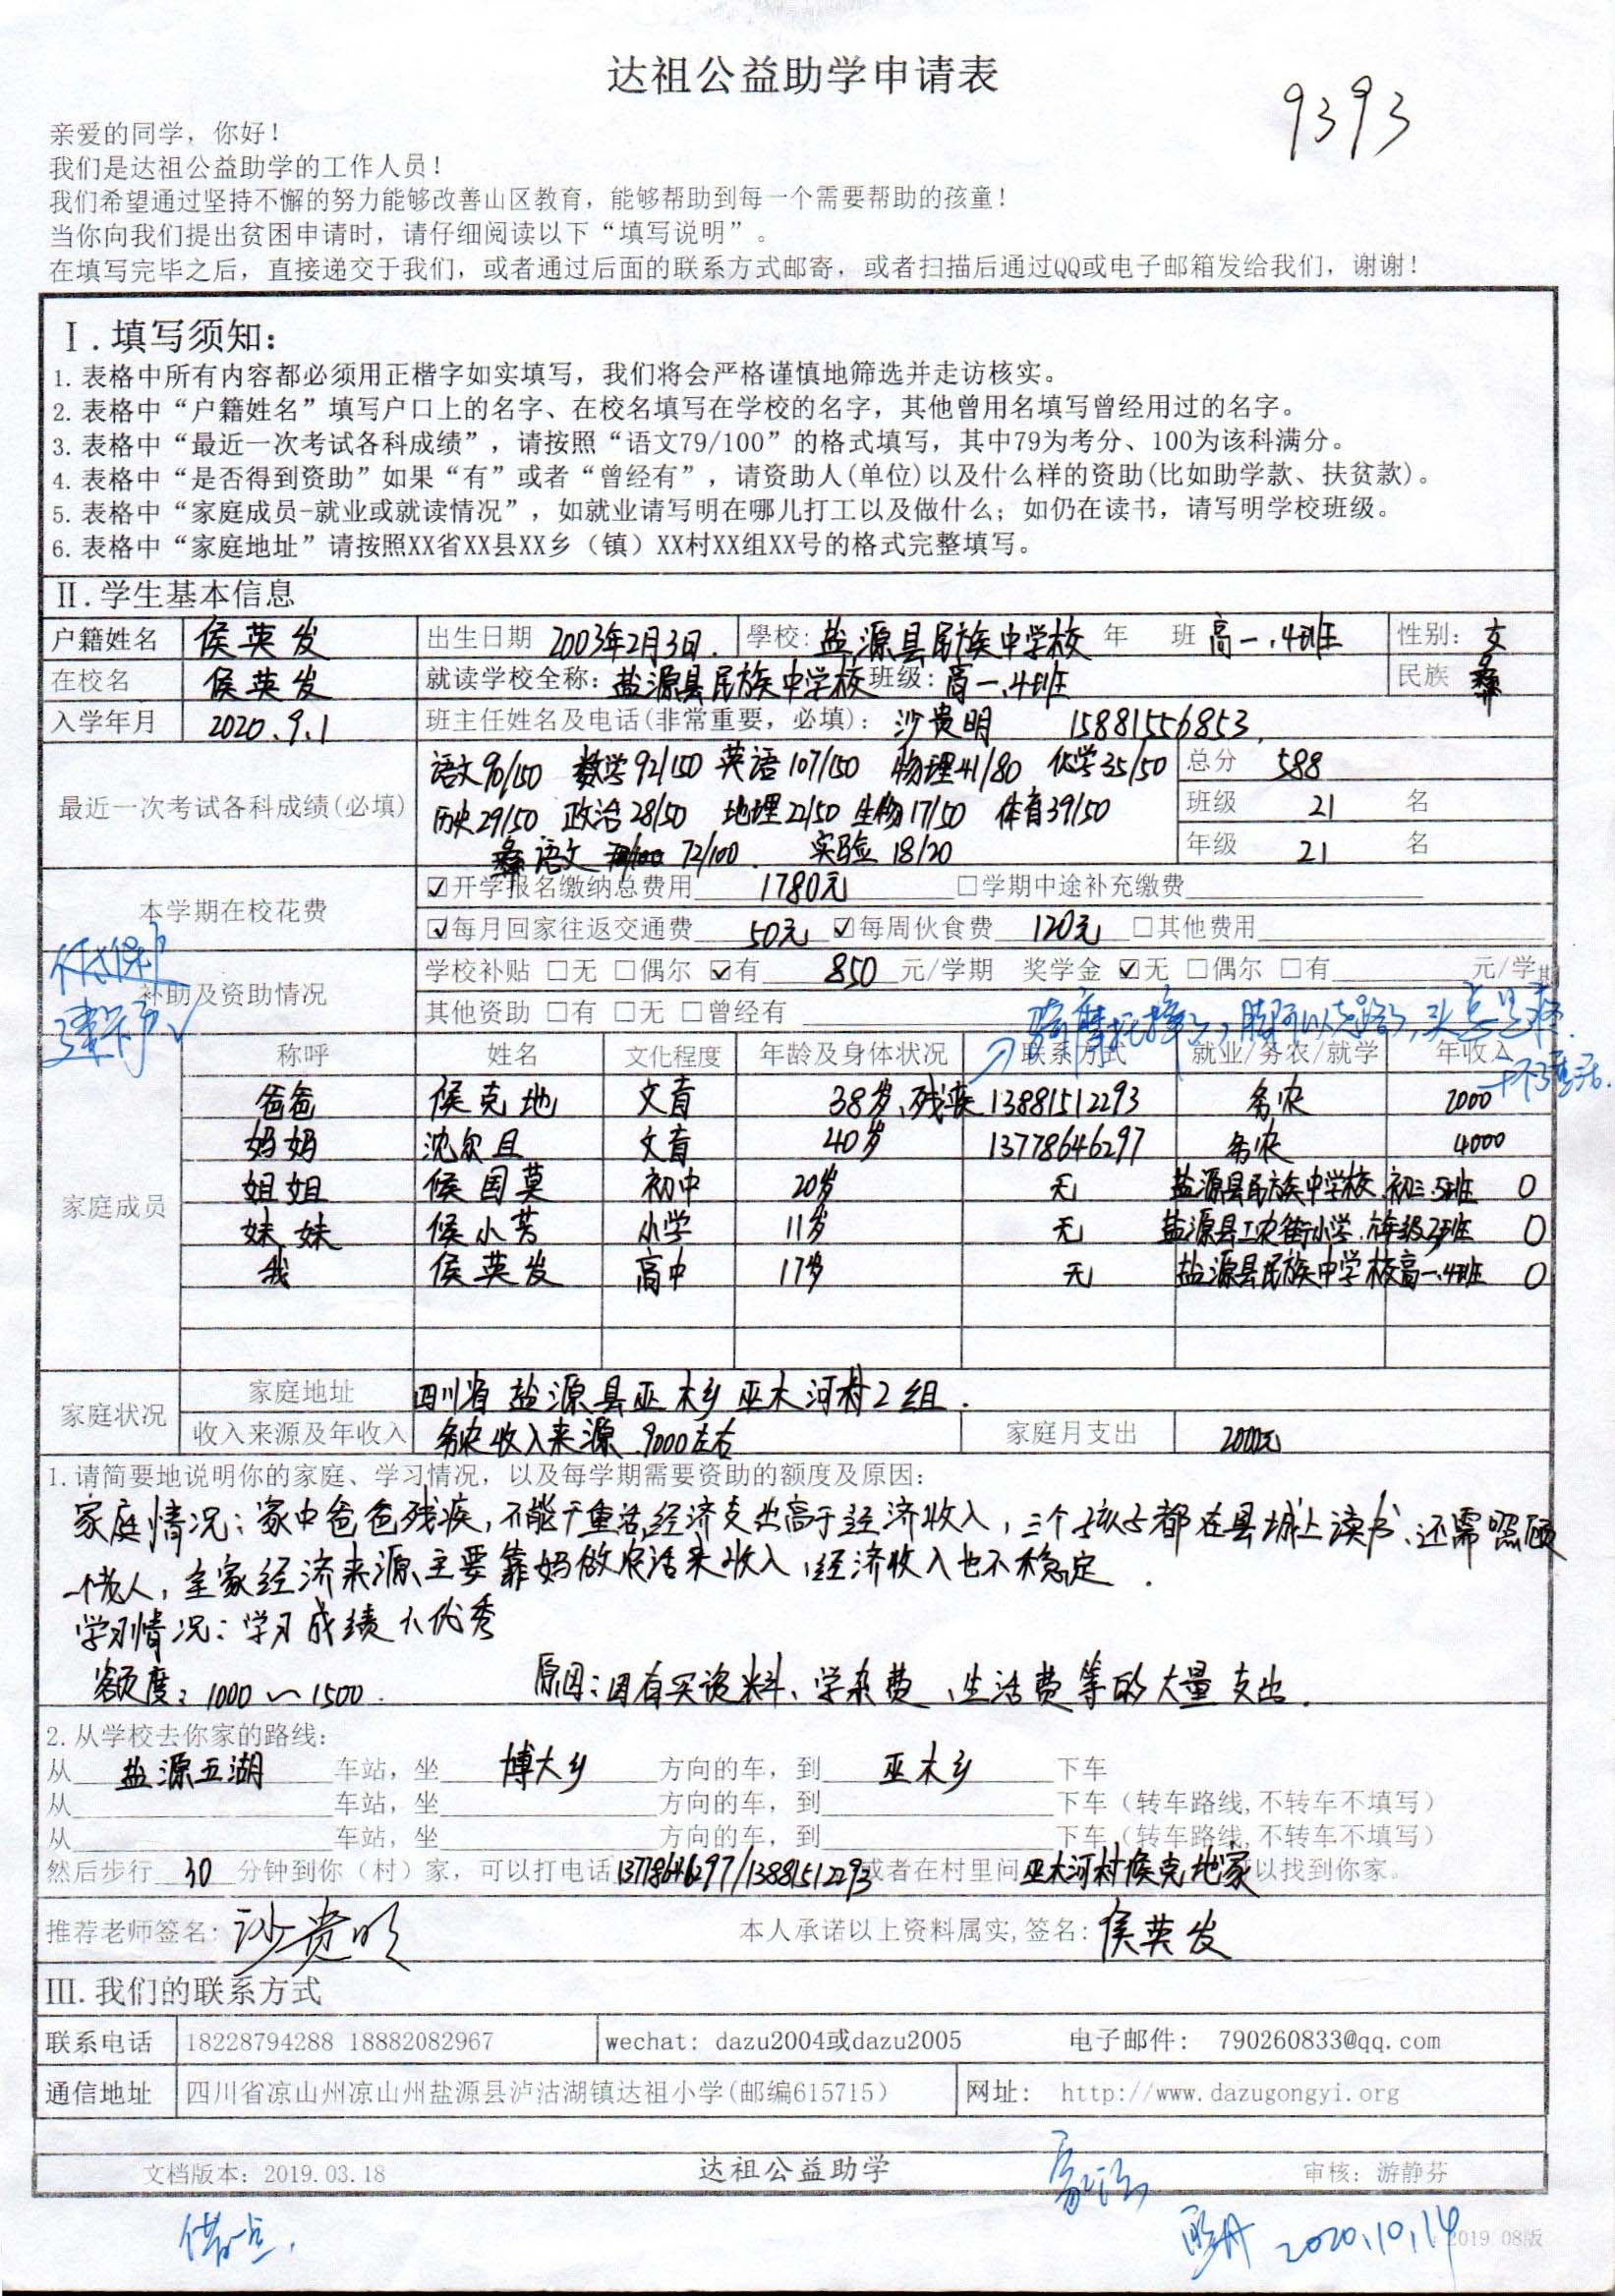 达祖公益助学申请表
9393
亲爱的同学，你好！
我们是达祖公益助学的工作人员！
我们希望通过坚持不懈的努力能够改善山区教育，能够帮助到每一个需要帮助的孩童！
当你向我们提出贫困申请时，请仔细阅读以下“填写说明”。
在填写完毕之后，直接递交于我们，或者通过后面的联系方式邮寄，或者扫描后通过QQ或电子邮箱发给我们，谢谢！
Ⅰ.填写须知：
1. 表格中所有内容都必须用正楷字如实填写，我们将会严格谨慎地筛选并走访核实。
2. 表格中“户籍姓名”填写户口上的名字、在校名填写在学校的名字，其他曾用名填写曾经用过的名字。
3. 表格中“最近一次考试各科成绩”，请按照“语文79/100”的格式填写，其中79为考分、100为该科满分。
4. 表格中“是否得到资助”如果“有”或者“曾经有”，请资助人(单位)以及什么样的资助(比如助学款、扶贫款)。
5. 表格中“家庭成员-就业或就读情况”，如就业请写明在哪儿打工以及做什么；如仍在读书，请写明学校班级。
6. 表格中“家庭地址”请按照XX省XX县XX乡（镇）XX村XX组XX号的格式完整填写。
Ⅱ.学生基本信息
户籍姓名 侯英发 出生日期 2003年2月3日. 學校: 盐源县民族中学校 年 班 高一.4班 性别: 女
在校名 侯英发 就读学校全称: 盐源县民族中学校 班级: 高一.4班 民族 彝
入学年月 2020.9.1 班主任姓名及电话(非常重要，必填): 沙贵明 15881556853.
最近一次考试各科成绩(必填) 语文90/150 数学92/150 英语107/150 物理41/80 化学35/50 总分 588
历史29/50 政治28/50 地理22/50 生物17/50 体育39/50 班级 21 名
彝语文 72/100. 实验 18/20 年级 21 名
本学期在校花费 ☑开学报名缴纳总费用 1780元 □学期中途补充缴费
☑每月回家往返交通费 50元 ☑每周伙食费 120元 □其他费用
补助及资助情况 学校补贴 □无 □偶尔 ☑有 850 元/学期 奖学金 ☑无 □偶尔 □有 元/学期
其他资助 □有 □无 □曾经有
家庭成员 称呼 姓名 文化程度 年龄及身体状况 联系方式 就业/务农/就学 年收入
爸爸 侯克地 文盲 38岁、残疾 13881512293 务农 2000
妈妈 沈尔且 文盲 40岁 13778646297 务农 4000
姐姐 侯国莫 初中 20岁 无 盐源县民族中学校 初三.5班 0
妹妹 侯小芳 小学 11岁 无 盐源县工农街小学.六年级2班 0
我 侯英发 高中 17岁 无 盐源县民族中学校高一.4班 0
家庭状况 家庭地址 四川省盐源县巫木乡巫木河村2组.
收入来源及年收入 务农收入来源.9000左右 家庭月支出 2000元
1.请简要地说明你的家庭、学习情况，以及每学期需要资助的额度及原因：
家庭情况：家中爸爸残疾，不能干重活，经济支出高于经济收入，三个孩子都在县城上读书、还需照顾
一个老人，全家经济来源主要靠妈做农活来收入，经济收入也不稳定.
学习情况：学习成绩不优秀
额度：1000～1500. 原因：因有买资料、学杂费、生活费等的大量支出.
2.从学校去你家的路线：
从 盐源五湖 车站，坐 博大乡 方向的车，到 巫木乡 下车
从 车站，坐 方向的车，到 下车（转车路线,不转车不填写）
从 车站，坐 方向的车，到 下车（转车路线,不转车不填写）
然后步行 30 分钟到你（村）家，可以打电话 13778646297/13881512293 或者在村里问 巫木河村侯克地家 以找到你家。
推荐老师签名: 沙贵明 本人承诺以上资料属实,签名: 侯英发
Ⅲ.我们的联系方式
联系电话 18228794288 18882082967 wechat: dazu2004或dazu2005 电子邮件: 790260833@qq.com
通信地址 四川省凉山州凉山州盐源县泸沽湖镇达祖小学(邮编615715) 网址: http://www.dazugongyi.org
文档版本: 2019.03.18 达祖公益助学 审核: 游静芬
2020.10.14 2019 08版